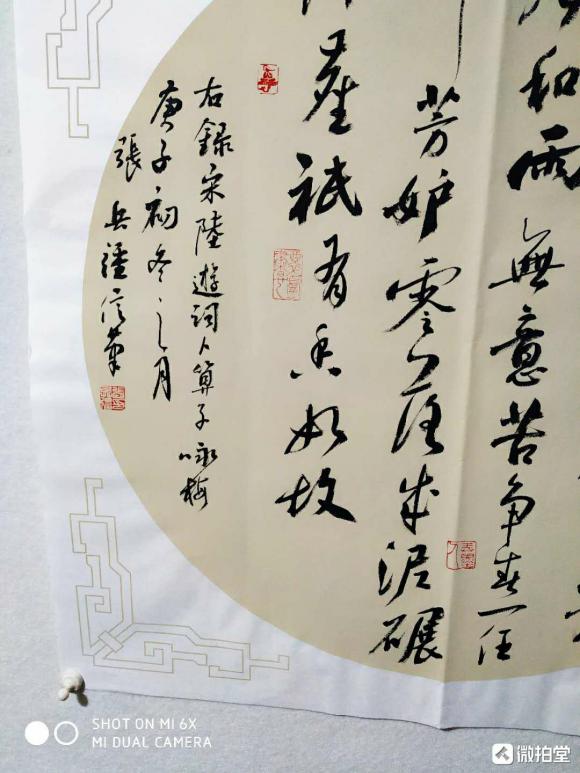 和雨無意苦争春一任
芳妒零落成泥碾
塵祇有香如故
右録宋陸遊詞卜算子咏梅
庚子初冬之月
張兵疆信筆
SHOT ON MI 6X
MI DUAL CAMERA
微拍堂